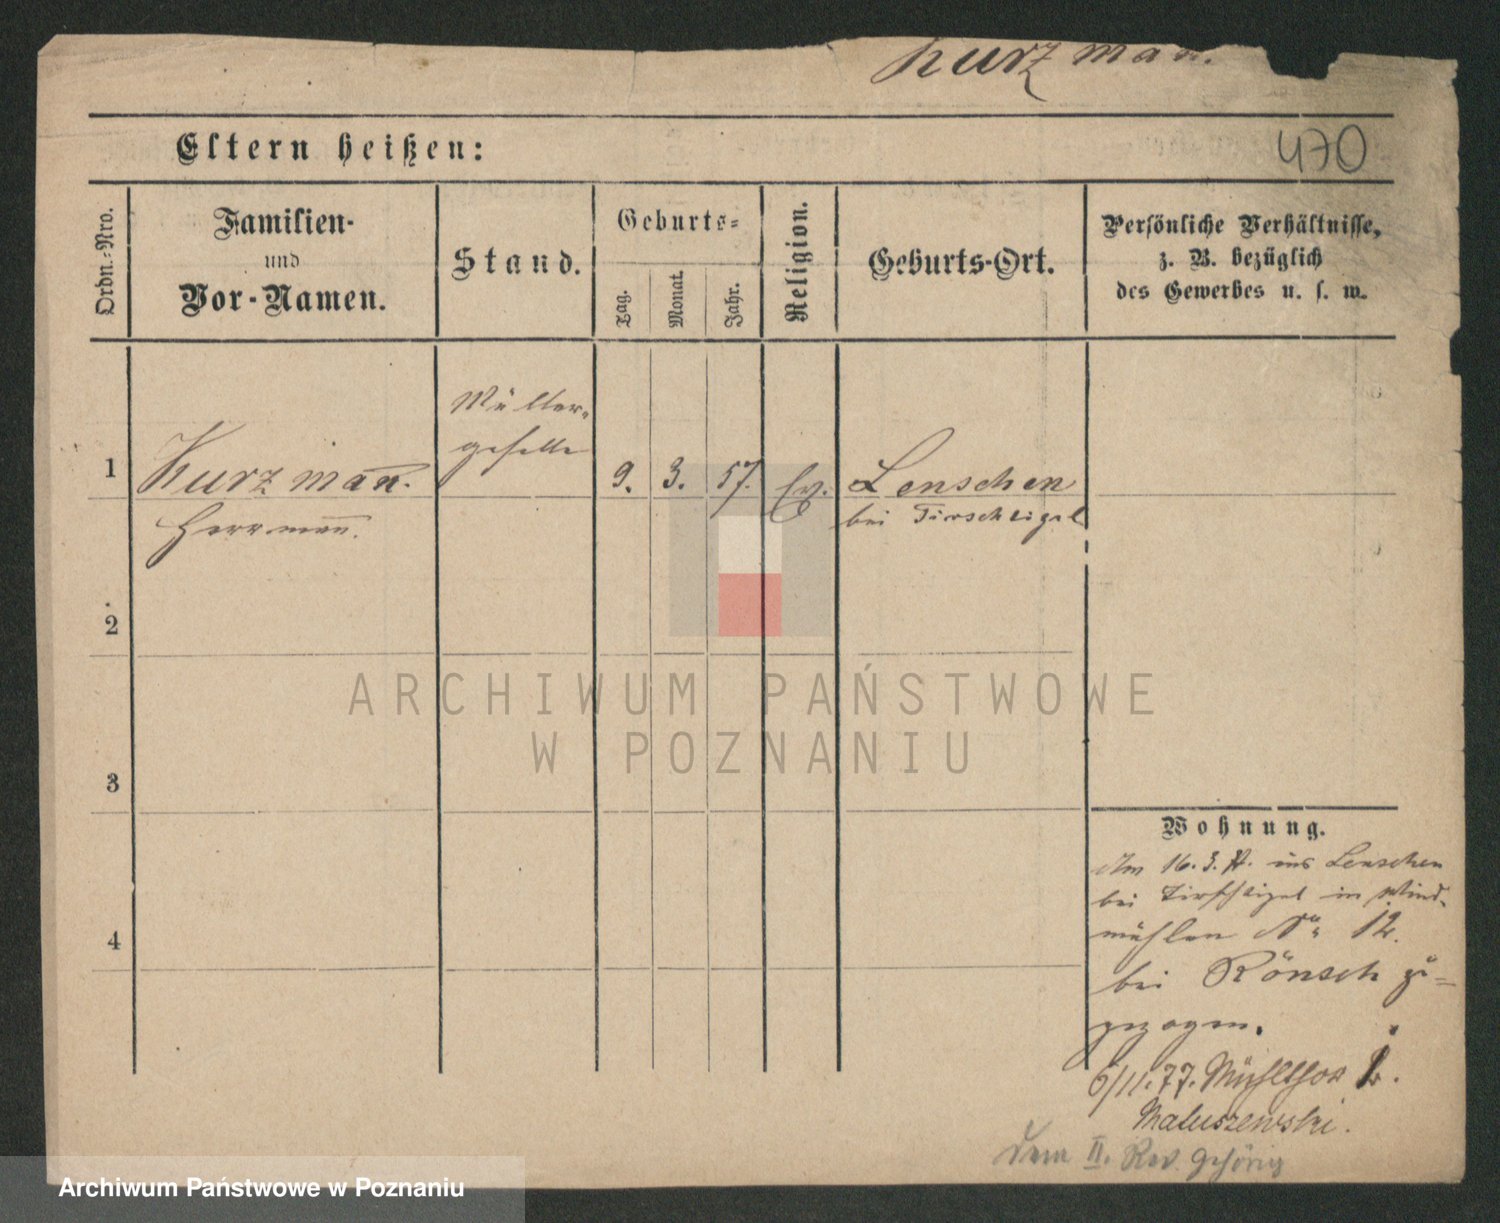 Kurzman.
470
Eltern heißen:
Ordn.-Nro.
Familien-
und
Vor-Namen.
Stand.
Geburts-
Tag.
Monat.
Jahr.
Religion.
Geburts-Ort.
Persönliche Verhältnisse,
z. B. bezüglich
des Gewerbes u. s. w.
1
Kurzman̄.
Herrman̄.
Müller-
geselle
9.
3.
57.
Ev.
Lenschen
bei Tirschtigel
2
3
4
Wohnung.
Am 16. 3. in Lenschen
bei Tirschtigel in Wind-
mühlen No 12.
bei Rönsch zu-
gezogen.
6/11.77. Mühlthor
Matuszewski.
Dem II. Rev. gehörig
ARCHIWUM PAŃSTWOWE
W POZNANIU
Archiwum Państwowe w Poznaniu